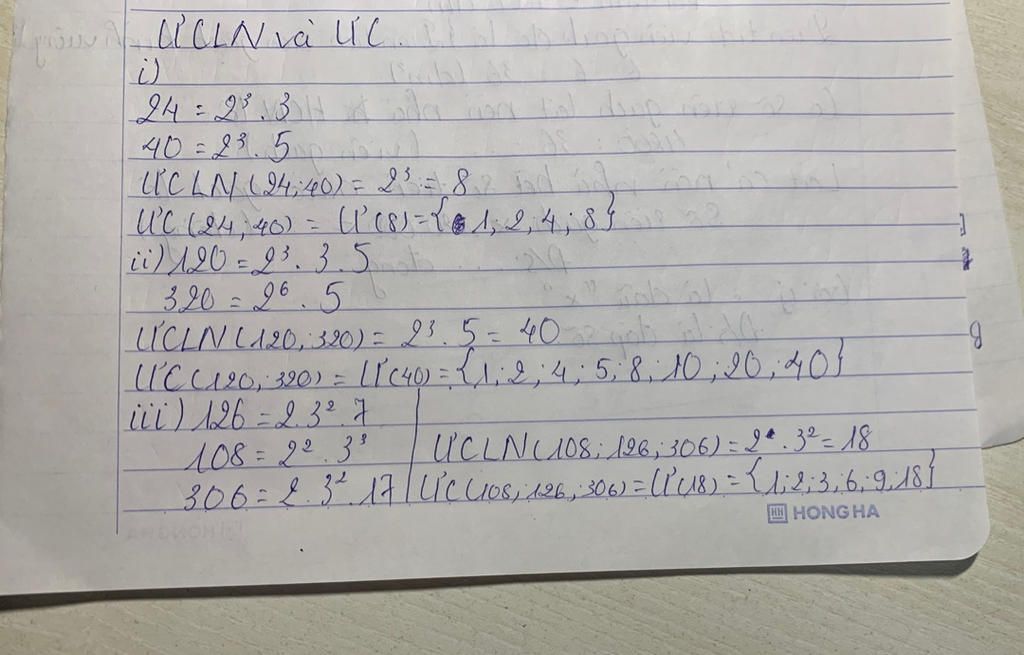 ƯCLN và ƯC.
i)
24 = 2³ . 3
40 = 2³ . 5
ƯCLN (24; 40) = 2³ = 8
ƯC (24; 40) = Ư(8) = {1; 2; 4; 8}
ii) 120 = 2³ . 3 . 5
320 = 2⁶ . 5
ƯCLN (120; 320) = 2³ . 5 = 40
ƯC (120; 320) = Ư(40) = {1; 2; 4; 5; 8; 10; 20; 40}
iii) 126 = 2 . 3² . 7
108 = 2² . 3³
306 = 2 . 3² . 17
ƯCLN (108; 126; 306) = 2 . 3² = 18
ƯC (108; 126; 306) = Ư(18) = {1; 2; 3; 6; 9; 18}
HH HONG HA